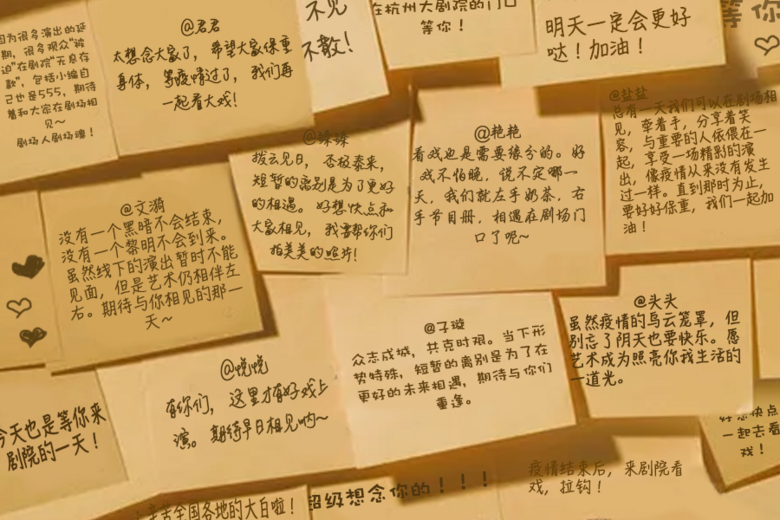 因为很多演出的延
期，很多观众"被
迫"在剧院"无息存
款"，包括小编自
己也是555，期待
着和大家在剧场相
见～
剧场人剧场魂！
@君君
太想念大家了，希望大家保重
身体，等疫情过了，我们再
一起看大戏！
不见
不散！
在杭州大剧院的门口
等你！
明天一定会更好
哒！加油！
等你
@文漪
没有一个黑暗不会结束，
没有一个黎明不会到来。
虽然线下的演出暂时不能
见面，但是艺术仍相伴左
右。期待与你相见的那一
天～
拨云见日，否极泰来，
短暂的离别是为了更好
的相遇。好想快点和
大家相见，我需帮你们
拍美美的照片！
@艳艳
看戏也是需要缘分的。好
戏不怕晚，说不定哪一
天，我们就左手奶茶，右
手节目册，相遇在剧场门
口了呢～
@盐盐
总有一天我们可以在剧场相
见，牵着手，分享着笑
容，与重要的人依偎在一
起，享受一场精彩的演
出，像疫情从来没有发生
过一样。直到那时为止，
要好好保重，我们一起加
油！
今天也是等你来
剧院的一天！
@悦悦
有你们，这里才有好戏上
演。期待早日相见呐～
@子璇
众志成城，共克时艰。当下形
势特殊，短暂的离别是为了在
更好的未来相遇，期待与你们
重逢。
@头头
虽然疫情的乌云笼罩，但
别忘了阴天也要快乐。愿
艺术成为照亮你我生活的
一道光。
好想快点
一起去看
戏！
辛苦全国各地的大白啦！
超级想念你的！！！
疫情结束后，来剧院看
戏，拉钩！